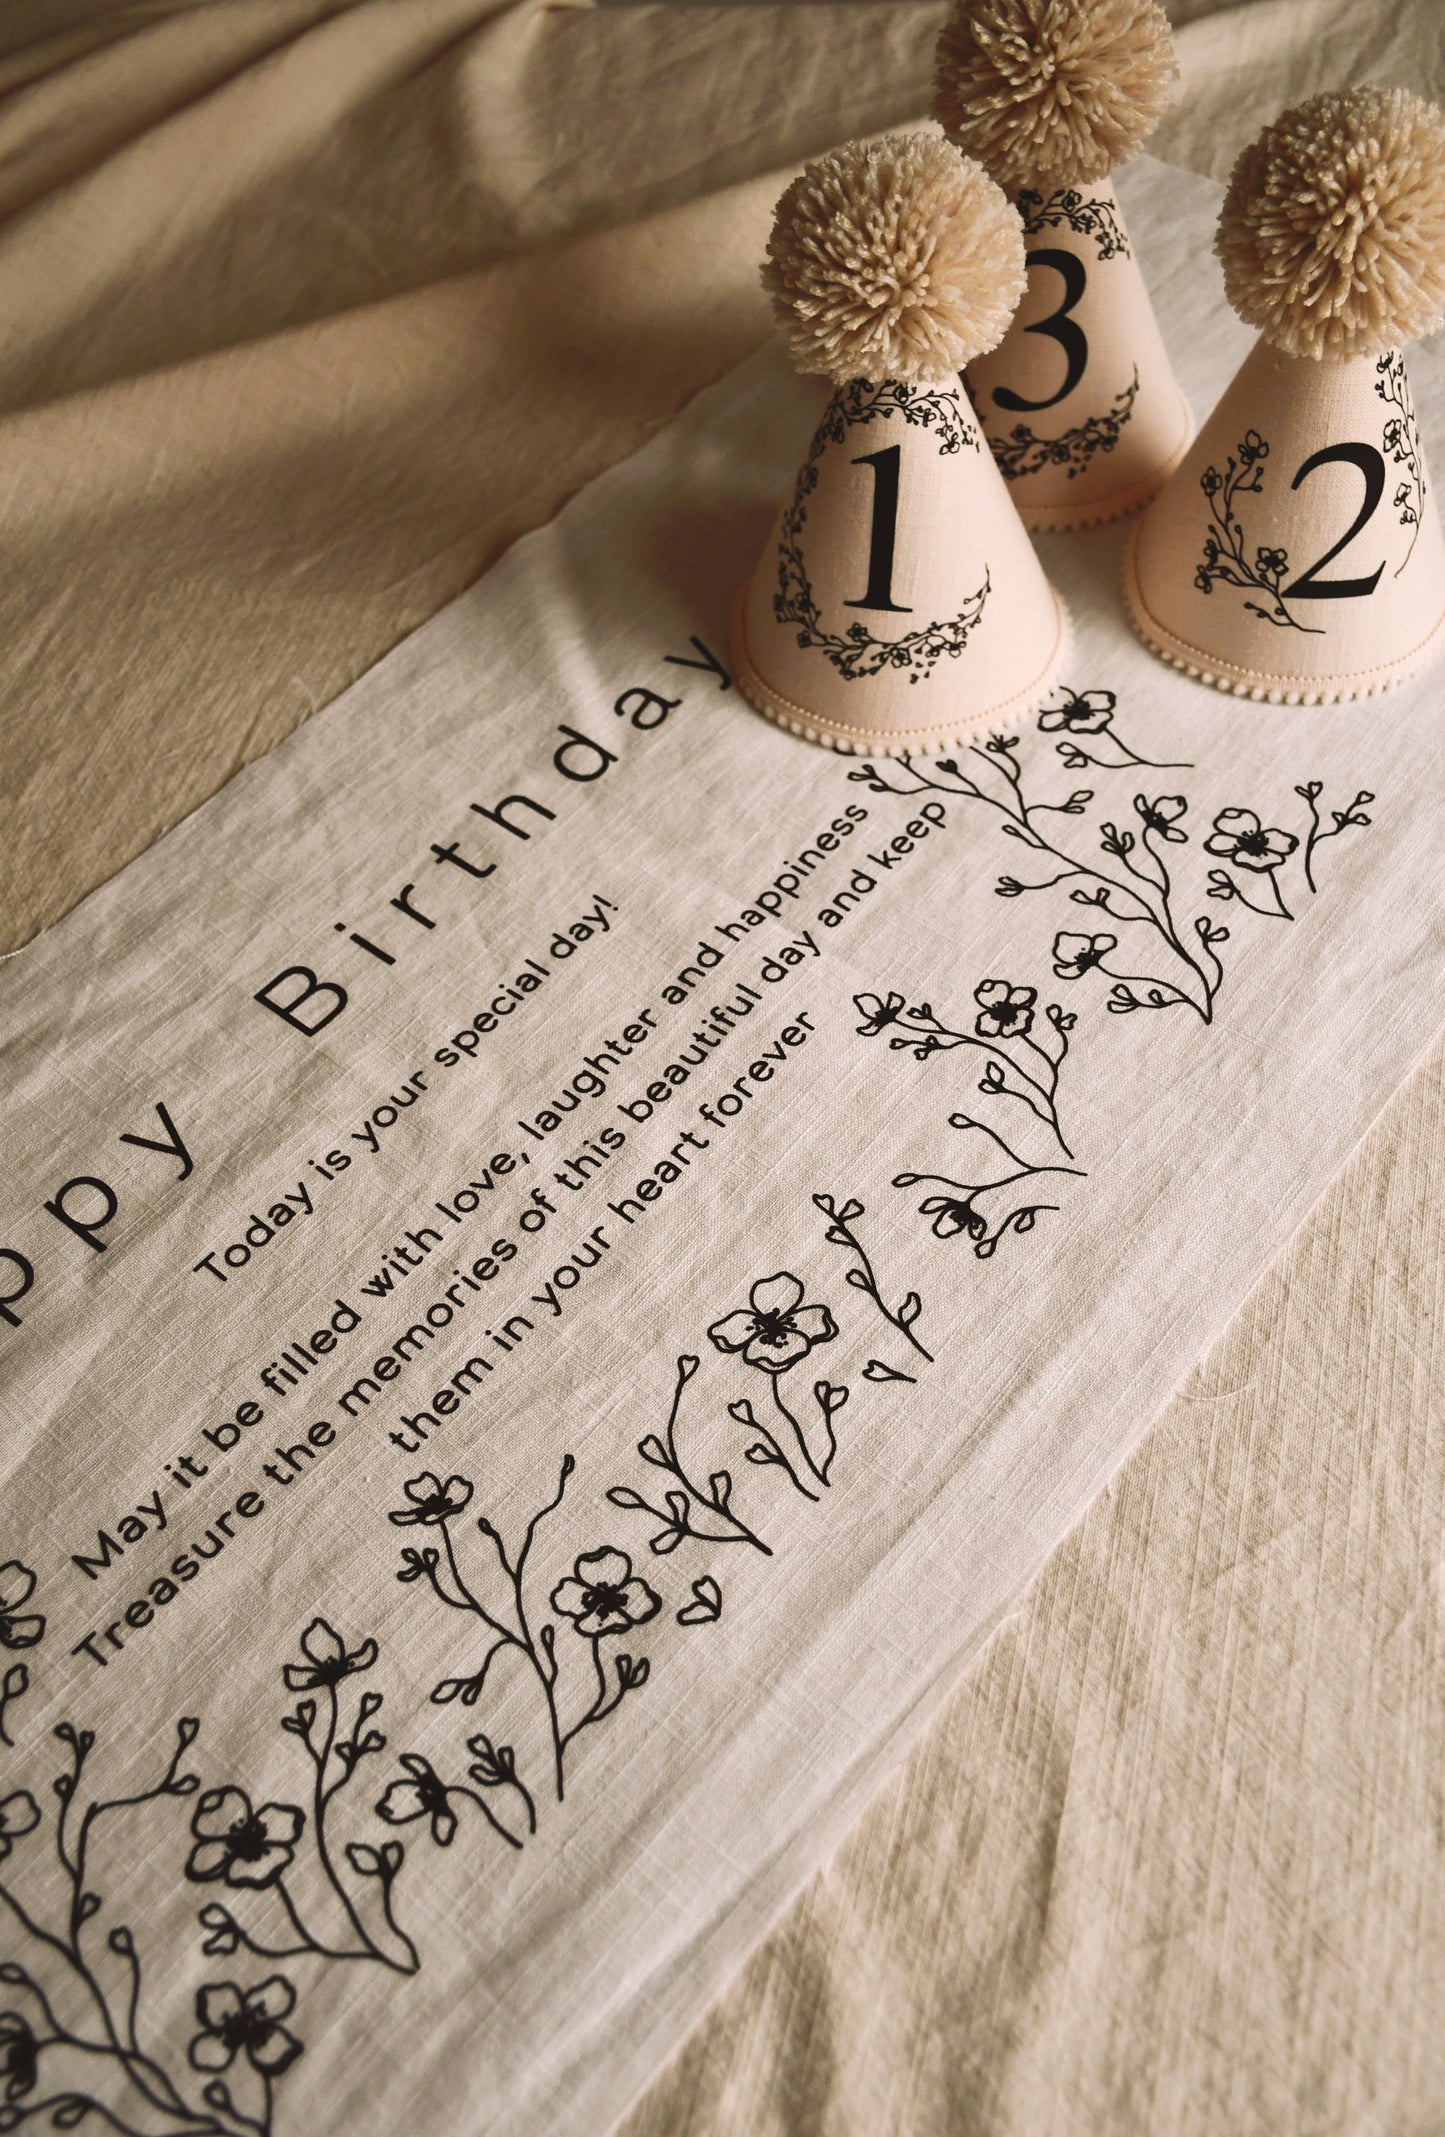 ppy Birthday
Today is your special day!
May it be filled with love, laughter and happiness
Treasure the memories of this beautiful day and keep
them in your heart forever
1
3
2